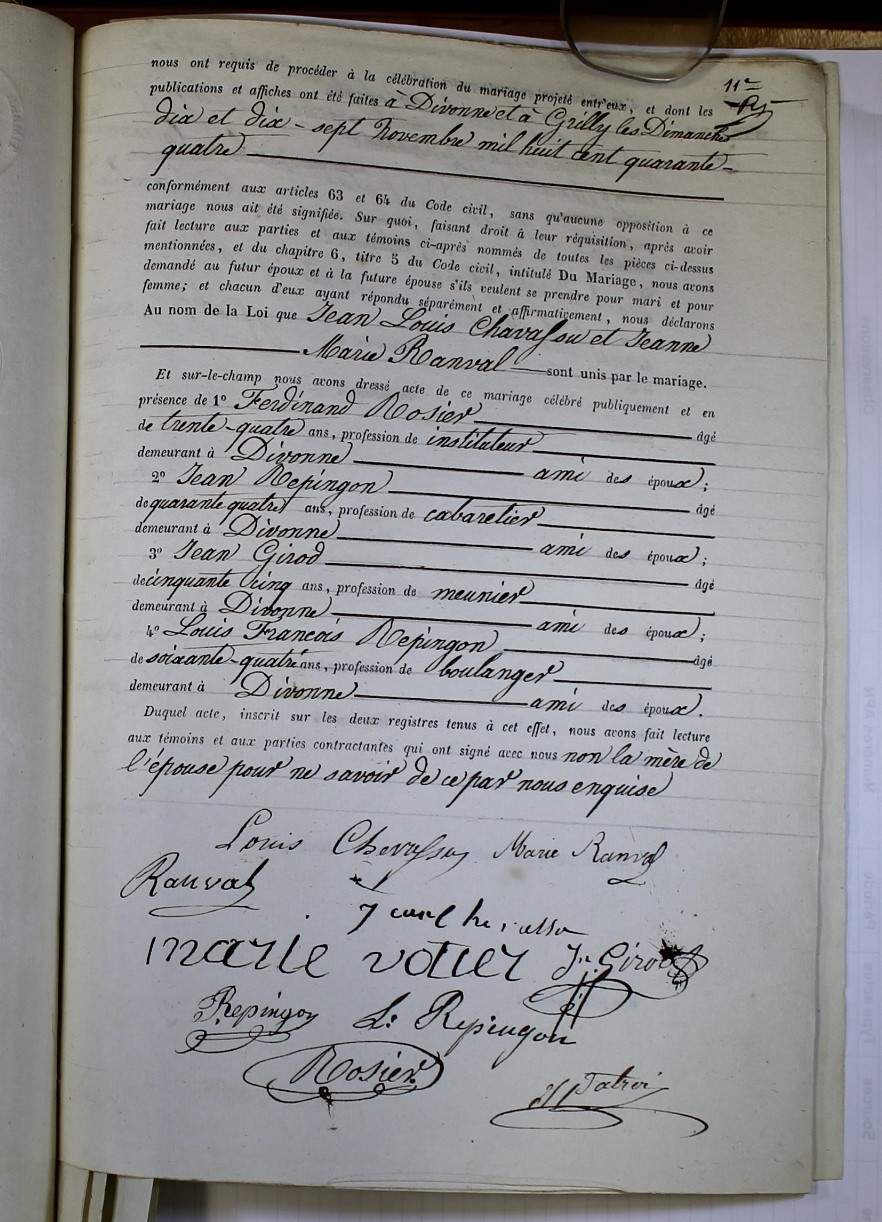 11e
nous ont requis de procéder à la célébration du mariage projeté entr'eux, et dont les
publications et affiches ont été faites à Divonne et à Grilly les Dimanches
dix et dix-sept Novembre mil huit cent quarante-
quatre
conformément aux articles 63 et 64 du Code civil, sans qu'aucune opposition à ce
mariage nous ait été signifiée. Sur quoi, faisant droit à leur réquisition, après avoir
fait lecture aux parties et aux témoins ci-après nommés de toutes les pièces ci-dessus
mentionnées, et du chapitre 6, titre 5 du Code civil, intitulé Du Mariage, nous avons
demandé au futur époux et à la future épouse s'ils veulent se prendre pour mari et pour
femme; et chacun d'eux ayant répondu séparément et affirmativement, nous déclarons
Au nom de la Loi que Jean Louis Chavassu et Jeanne
Marie Ranval sont unis par le mariage.
Et sur-le-champ nous avons dressé acte de ce mariage célébré publiquement et en
présence de 1º Ferdinand Rosier âgé
de trente-quatre ans, profession de instituteur
demeurant à Divonne ami des époux;
2º Jean Repingon âgé
de quarante quatre ans, profession de cabaretier
demeurant à Divonne ami des époux;
3º Jean Girod âgé
de cinquante cinq ans, profession de meunier
demeurant à Divonne ami des époux;
4º Louis François Repingon âgé
de soixante-quatre ans, profession de boulanger
demeurant à Divonne ami des époux.
Duquel acte, inscrit sur les deux registres tenus à cet effet, nous avons fait lecture
aux témoins et aux parties contractantes qui ont signé avec nous non la mère de
l'épouse pour ne savoir de ce par nous enquise
Louis Chevassu Marie Ranval
Ranval
marie votier Jn Girod
Repingon Ls Repingon
Rosier